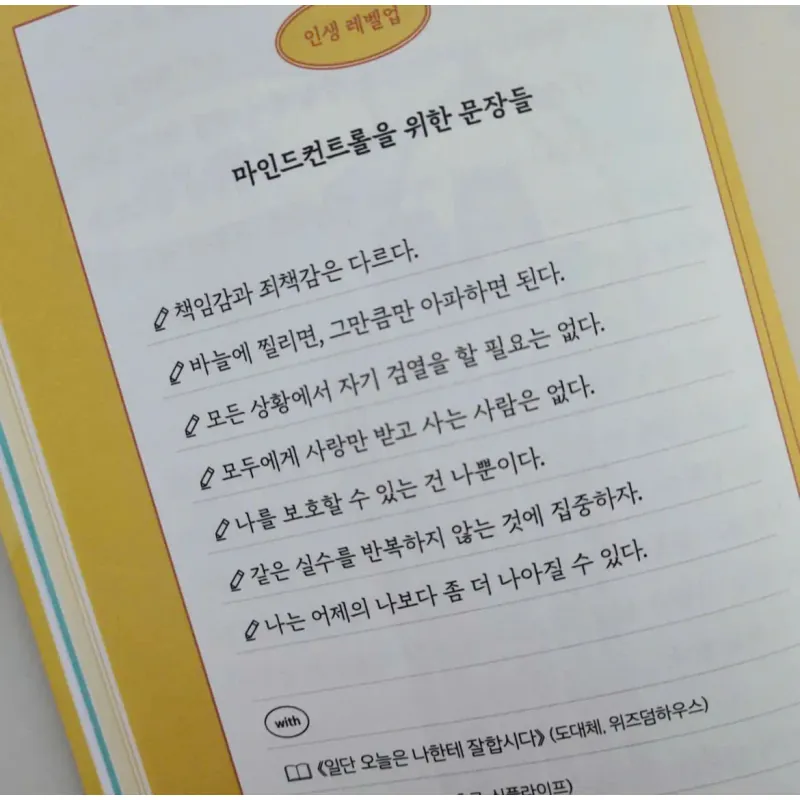 인생 레벨업
마인드컨트롤을 위한 문장들
책임감과 죄책감은 다르다.
바늘에 찔리면, 그만큼만 아파하면 된다.
모든 상황에서 자기 검열을 할 필요는 없다.
모두에게 사랑만 받고 사는 사람은 없다.
나를 보호할 수 있는 건 나뿐이다.
같은 실수를 반복하지 않는 것에 집중하자.
나는 어제의 나보다 좀 더 나아질 수 있다.
with
《일단 오늘은 나한테 잘합시다》 (도대체, 위즈덤하우스)
심플라이프)